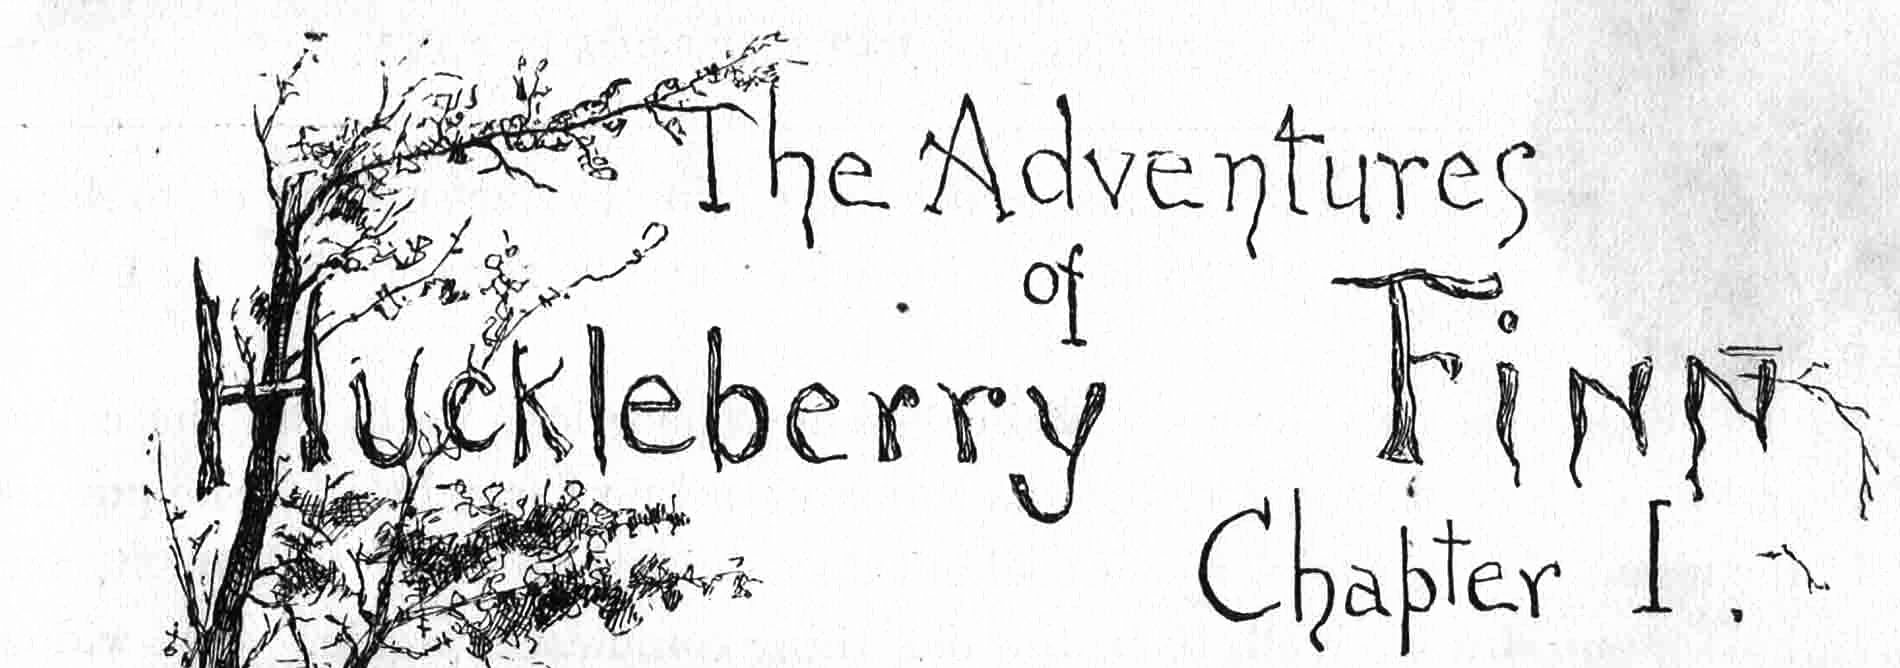 The Adventures
of
Huckleberry Finn
Chapter I.